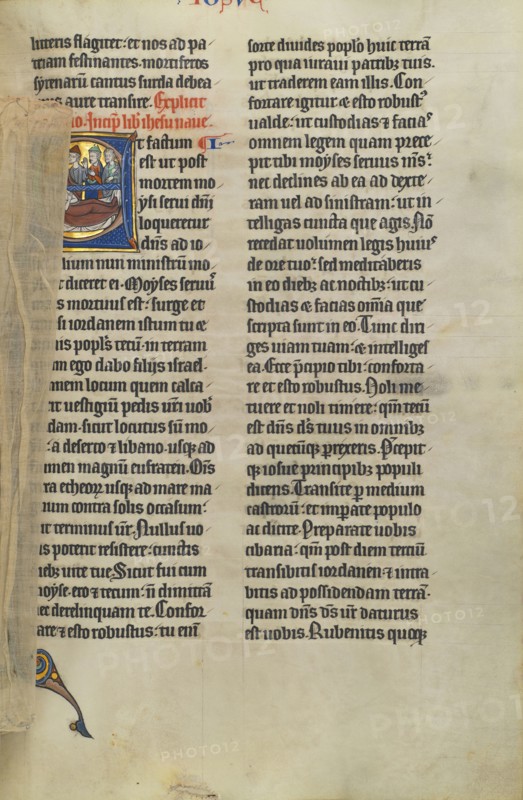 Iosue
litteris flagitet: et nos ad pa
triam festinantes mortiferos
syrenarū cantus surda debea
aure transire. Explicit
Incip̄ lib̄ ihesu naue.
t factum
est ut post
mortem mo
ysi serui dn̄i
loqueretur
dn̄s ad io
num ministrū mo
t diceret ei. Moyses seruꝰ
s mortuus est: surge et
si iordanem istum tu ⁊
is popl̄s tecū in terram
m ego dabo filijs israel.
locum quem calca
it uestigiū pedis ur̄i uob̄
dam. sicut locutus sū mo
a deserto ⁊ libano. usqꝫ ad
magnū eufraten. Om̄s
ra etheoꝝ usqꝫ ad mare ma
num contra solis occasum:
it terminus ur̄. Nullus uo
is poterit resistere: cunctis
iebꝫ uite tue. Sicut fui cum
moyse. ero ⁊ tecum: n̄ dimittā
nec derelinquam te. Confor
are ⁊ esto robustus: tu eni
sorte diuides popl̄o huic terrā
pro qua iuraui patribꝫ tuis.
ut traderem eam illis. Con
fortare igitur ⁊ esto robustꝰ
ualde: ut custodias ⁊ faciaˢ
omnem legem quam prece
pit tibi moyses seruus mꝰs:
nec declines ab ea ad dexte
ram uel ad sinistram: ut in
telligas cuncta que agis. Nō
recedat uolumen legis huiꝰ
de ore tuo: sed meditaberis
in eo diebꝫ ac noctibꝫ: ut cu
stodias ⁊ facias om̄ia que
scripta sunt in eo. Tunc diri
ges uiam tuam: ⁊ intelliges
ea. Ecce p̄cipio tibi: conforta
re et esto robustus. Noli me
tuere et noli timere: qm̄ tecū
est dn̄s dꝰs tuus in omnibꝫ
ad quecūqꝫ ꝑrexeris. P̄cepit
qꝫ iosue principibꝫ populi
dicens. Transite ꝑ medium
castrorū: et imꝑate populo
ac dicite. Preparate uobis
cibaria: qm̄ post diem terciū
transibitis iordanen ⁊ intra
bitis ad possidendam terrā.
quam dn̄s dꝰs ur̄ daturus
est uobis. Rubenitis quoqꝫ
PHOTO12